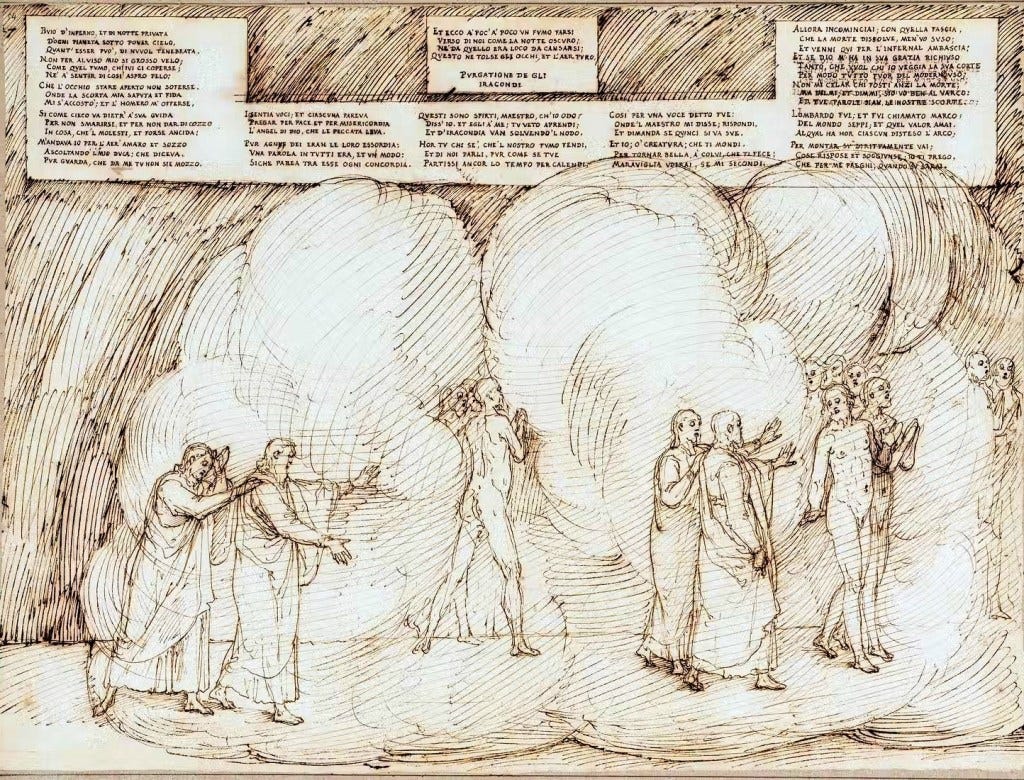 BVIO D'INFERNO, ET DI NOTTE PRIVATA
D'OGNI PIANETA SOTTO POVER CIELO,
QVANT' ESSER PVO', DI NVVOL TENEBRATA,
NON FER' AL VISO MIO SI GROSSO VELO;
COME QVEL FVMO, CH'IVI CI COPERSE;
NE' A SENTIR DI COSI ASPRO PELO;
CHE L'OCCHIO STARE APERTO NON SOFERSE.
ONDE LA SCORTA MIA SAPVTA ET FIDA
MI S'ACCOSTO', ET L'HOMERO M'OFFERSE,
SI COME CIECO VA DIETR' A SVA GVIDA
PER NON SMARRIRSI, ET PER NON DAR DI COZZO
IN COSA, CHE'L MOLESTI, ET FORSE ANCIDA;
M'ANDAVA IO PER L'AER' AMARO ET SOZZO
ASCOLTANDO L MIO DVCA; CHE DICEVA.
PVR GVARDA, CHE DA ME TV NON SIE MOZZO.
ET ECCO A' POC' A' POCO VN FVMO FARSI
VERSO DI NOI COME LA NOTTE OSCVRO;
NE' DA QVELLO ERA LOCO DA CANSARSI;
QVESTO NE TOLSE GLI OCCHI, ET L'AER PVRO.
PVRGATIONE DE GLI
IRACONDI
IO SENTIA VOCI; ET CIASCVNA PAREVA
PREGAR PER PACE ET PER MISERICORDIA
L'ANGEL DI DIO, CHE LE PECCATA LEVA.
PVR AGNVS DEI ERAN LE LORO ESSORDIA:
VNA PAROLA IN TVTTI ERA, ET VN MODO:
SI CHE PAREA TRA ESSE OGNI CONCORDIA.
QVESTI SONO SPIRTI, MAESTRO, CH'IO ODO?
DISS' IO. ET EGLI A' ME: TV VERO APRENDI;
ET D'IRACONDIA VAN SOLVENDO'L NODO.
HOR TV CHI SE', CHE'L NOSTRO FVMO FENDI,
ET DI NOI PARLI, PVR COME SE TVE
PARTISSI ANCOR LO TEMPO PER CALENDI
COSI PER VNA VOCE DETTO FVE:
ONDE'L MAESTRO MI DISSE; RISPONDI,
ET DIMANDA SE QVINCI SI VA SVE.
ET IO; O' CREATVRA; CHE TI MONDI,
PER TORNAR BELLA A' COLVI, CHE TI FECE;
MARAVIGLIA VDIRAI, SE MI SECONDI.
ALLORA INCOMINCIAI; CON QVELLA FASCIA,
CHE LA MORTE DISSOLVE, MEN'VO SVSO;
ET VENNI QVI PER L'INFERNAL AMBASCIA;
ET SE DIO M'HA IN SVA GRATIA RICHIVSO
TANTO, CHE VVOL CH'IO VEGGIA LA SVA CORTE
PER MODO TVTTO FVOR DEL MODERN'VSO;
NON MI CELAR CHI FOSTI ANZI LA MORTE;
MA DILMI; ET DIMMI, S'IO VO BEN AL VARCO:
ET TVE PAROLE FIAN LE NOSTRE SCORTE.
LOMBARDO FVI; ET FVI CHIAMATO MARCO:
DEL MONDO SEPPI; ET QVEL VALOR AMAI,
AL QVAL HA HOR CIASCVN DISTESO L'ARCO,
PER MONTAR SV DIRITTAMENTE VAI;
COSI RISPOSE ET SOGGIVNSE: IO TI PREGO,
CHE PER ME PREGHI, QVANDO SV SARAI.